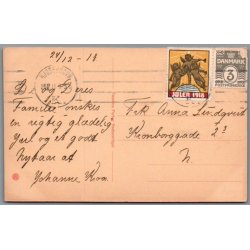 24/12-18
De og Deres
Familie ønskes
en rigtig glædelig
Jul og et godt
Nytaar af
Johanne
JULEN 1918
DANMARK
3
Frk Anna Lundqvist
Kronborggade 2³
N